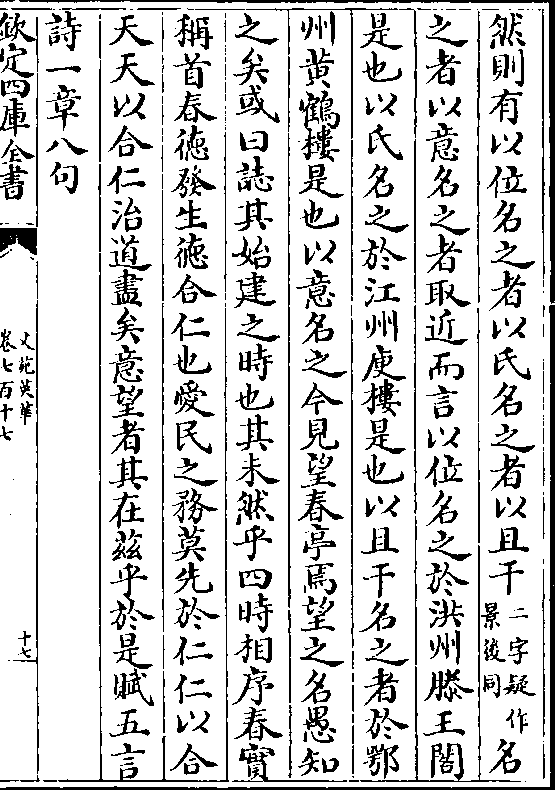 然則有以位名之者以氏名之者以且干二字疑作景後同名
之者以意名之者取近而言以位名之於洪州滕王閣
是也以氏名之於江州庾樓是也以且干名之者於鄂
州黄鶴樓是也以意名之今見望春亭焉望之名愚知
之矣或曰誌其始建之時也其未然乎四時相序春實
稱首春徳發生徳合仁也愛民之務莫先於仁仁以合
天天以合仁治道盡矣意望者其在茲乎於是賦五言
詩一章八句
欽定四庫全書
文苑英華
卷七百十七
十七